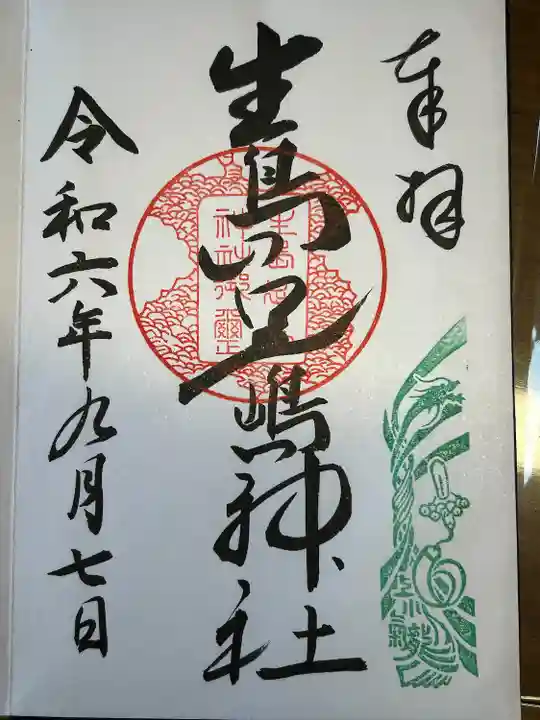 奉拝
生島足嶋神社
生島足
神社御璽
令和六年九月七日